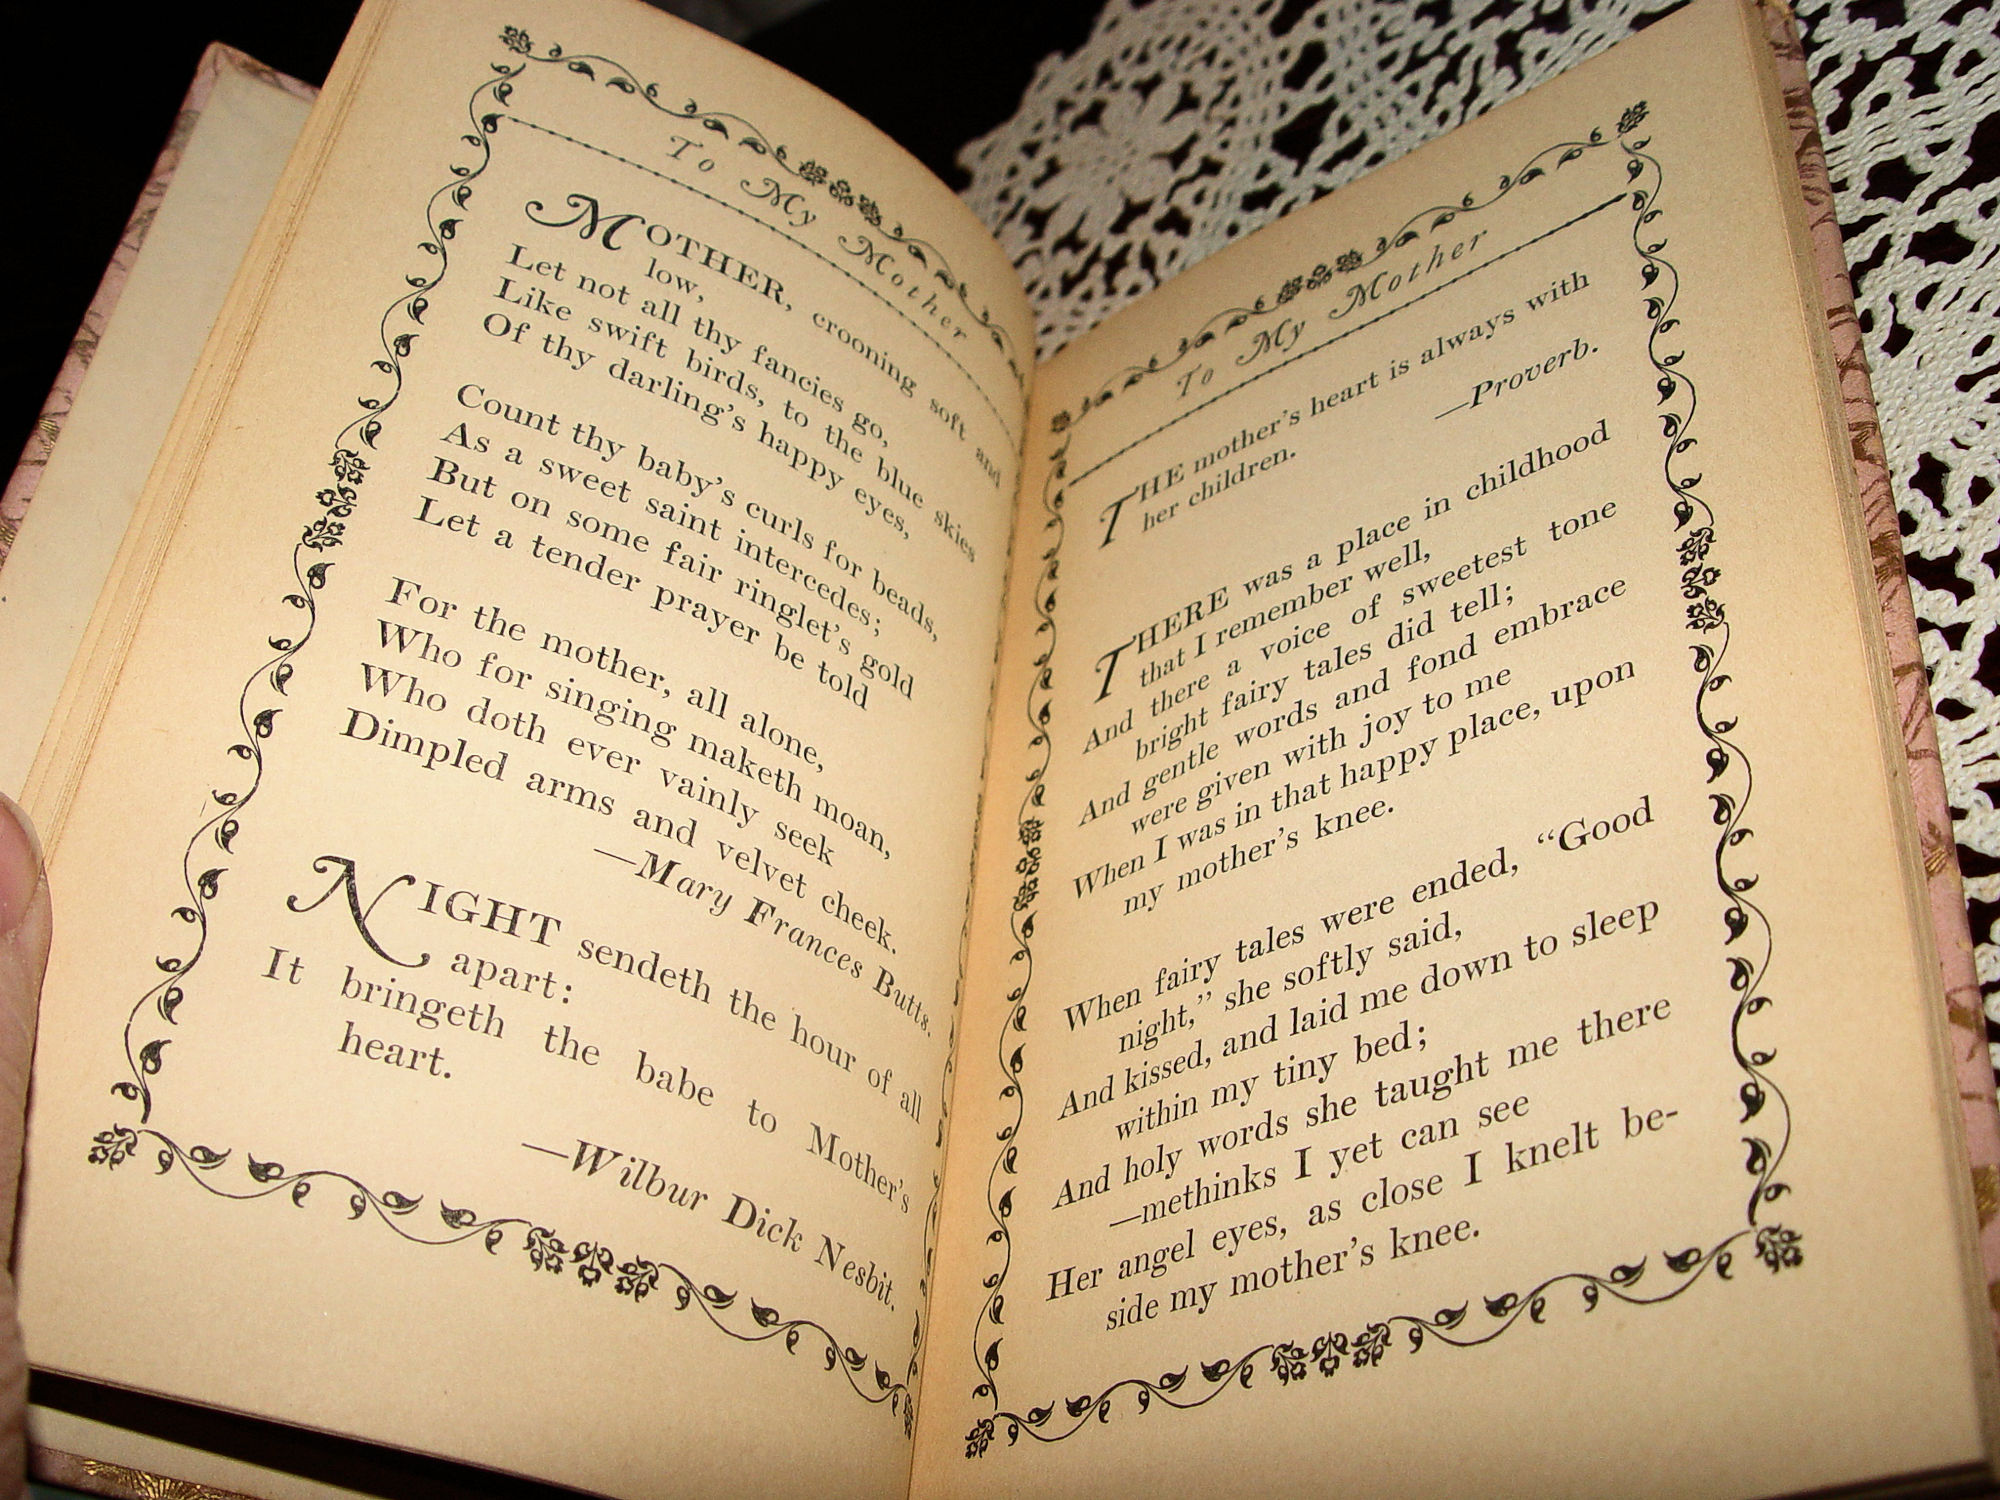 To My Mother
MOTHER, crooning soft and
low,
Let not all thy fancies go,
Like swift birds, to the blue skies
Of thy darling's happy eyes,
Count thy baby's curls for beads,
As a sweet saint intercedes;
But on some fair ringlet's gold
Let a tender prayer be told
For the mother, all alone,
Who for singing maketh moan,
Who doth ever vainly seek
Dimpled arms and velvet cheek.
—Mary Frances Butts.
NIGHT sendeth the hour of all
apart:
It bringeth the babe to Mother's
heart.
—Wilbur Dick Nesbit.
To My Mother
THE mother's heart is always with
her children.
—Proverb.
THERE was a place in childhood
that I remember well,
And there a voice of sweetest tone
bright fairy tales did tell;
And gentle words and fond embrace
were given with joy to me
When I was in that happy place, upon
my mother's knee.
When fairy tales were ended, “Good
night,” she softly said,
And kissed, and laid me down to sleep
within my tiny bed;
And holy words she taught me there
—methinks I yet can see
Her angel eyes, as close I knelt be-
side my mother's knee.